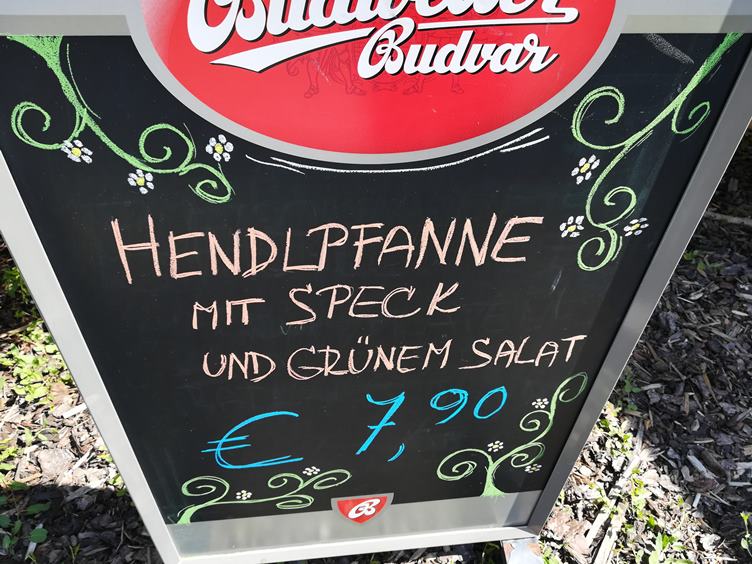 Budweiser
Budvar
HENDLPFANNE
MIT SPECK
UND GRÜNEM SALAT
€ 7,90
B